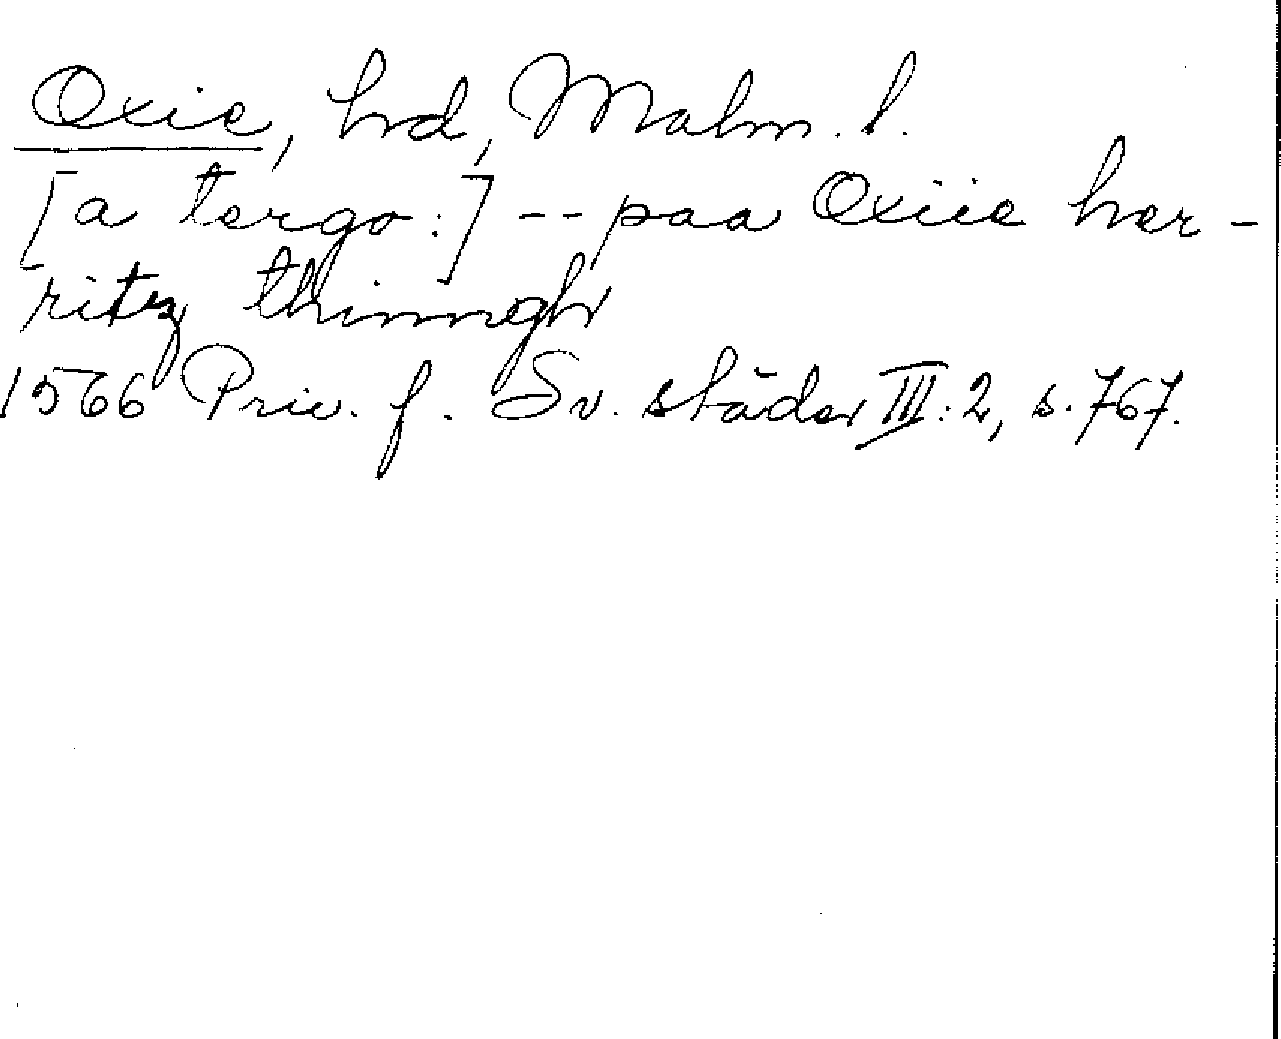 Oxie, hrd, Malm. l.
[a tergo:] -- paa Oxiie her-
ritz thinngh
1566 Priv. f. Sv. städer III:2, s. 767.